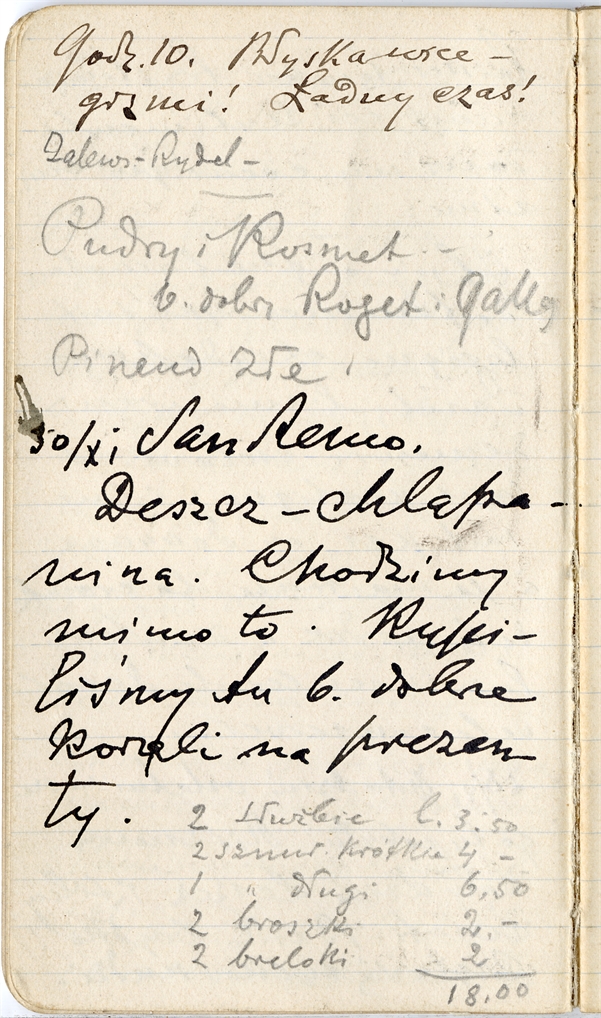 Godz. 10. Błyskawice –
grzmi! Ładny czas!
Zalews-Rydel –
Pudry i Kosmet. –
b. dobrz Roget i Gallet
Pinaud złe!
30/XI San Remo.
Deszcz – chlapa-
nina. Chodzimy
mimo to. Kupi-
liśmy tu b. dobre
korali na prezen-
ty.
2 służbie l. 3.50
2 sznur. krótkie 4 –
1 " długi 6,50
2 broszki 2.–
2 breloki 2
18.00